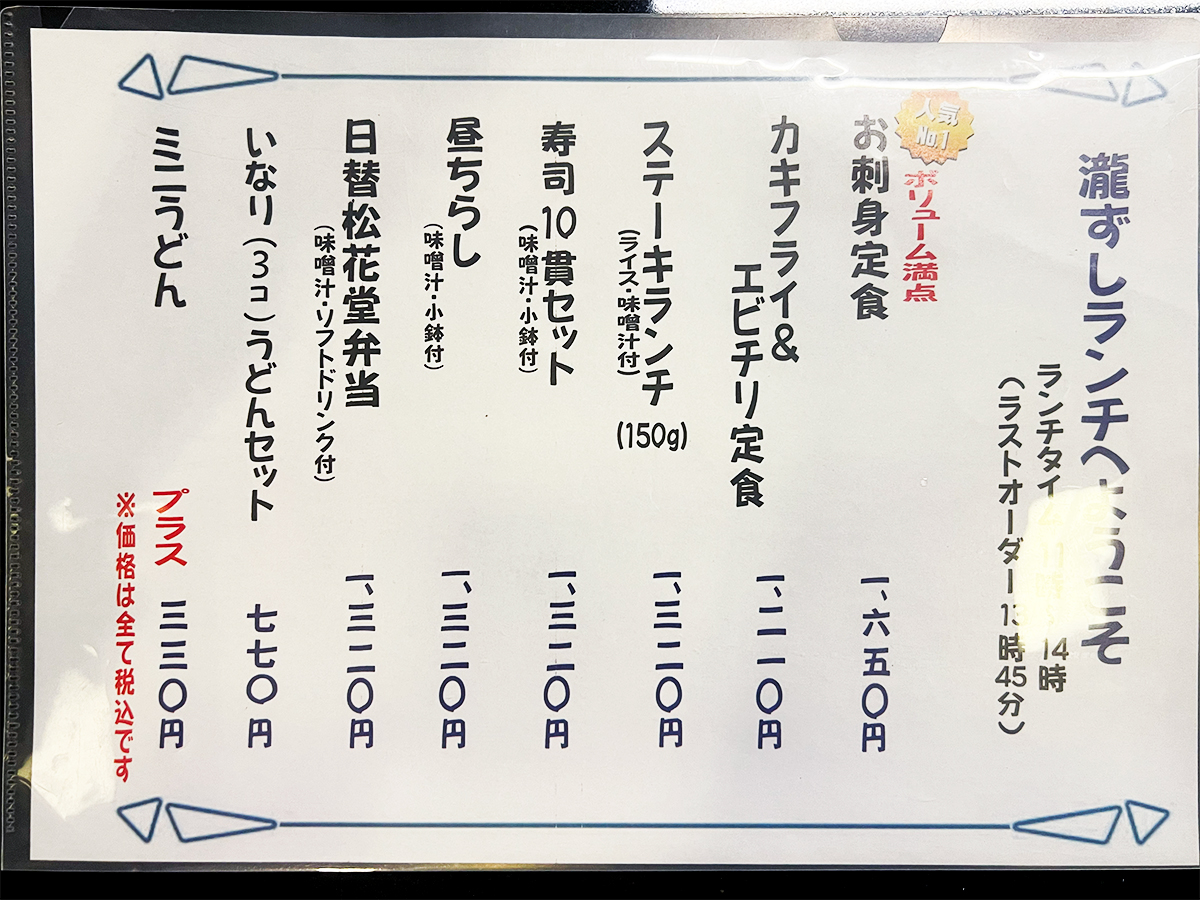 瀧ずしランチへようこそ
ランチタイム 11時 14時
(ラストオーダー 13時45分)
人気
No.1
ボリューム満点
お刺身定食 一、六五〇円
カキフライ&
エビチリ定食 一、二一〇円
ステーキランチ (150g) 一、三二〇円
(ライス・味噌汁付)
寿司10貫セット 一、三二〇円
(味噌汁・小鉢付)
昼ちらし 一、三二〇円
(味噌汁・小鉢付)
日替松花堂弁当 一、三二〇円
(味噌汁・ソフトドリンク付)
いなり(3コ)うどんセット 七七〇円
ミニうどん プラス 三三〇円
※価格は全て税込です